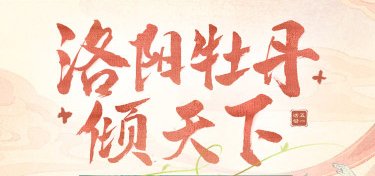 洛阳牡丹
倾天下